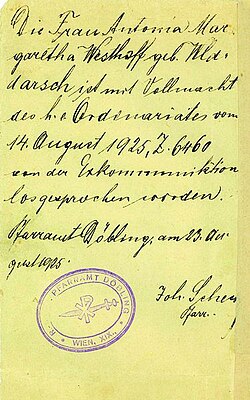 Die Frau Antonia Mar-
garetha Westhoff geb. Uld-
darsch ist mit Vollmacht
des h. e. Ordinariates vom
14. August 1925, Z. 6460
von der Exkommunikation
losgesprochen worden.
Pfarramt Döbling, am 23. Au-
gust 1925.
Joh.
Pfarr.
PFARRAMT DÖBLING
WIEN, XIX.